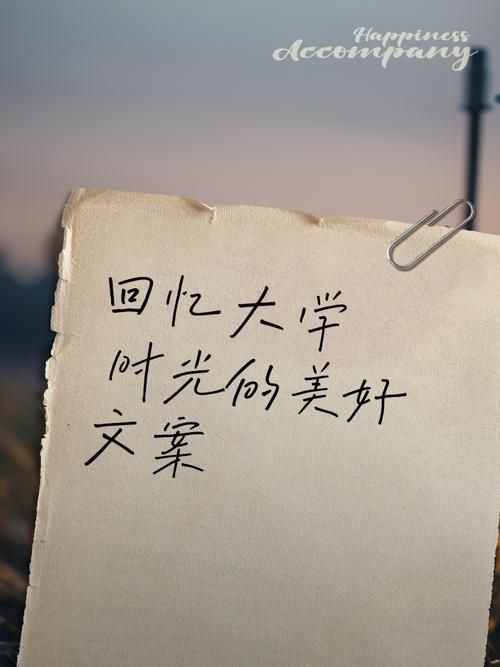 Happiness
Accompany
回忆大学
时光的美好
文案